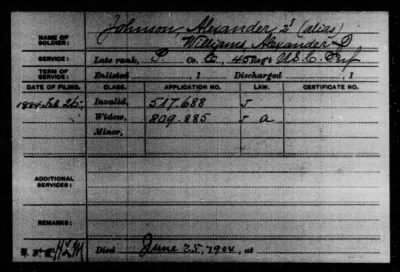 Johnson, Alexander 2d (alias)
NAME OF SOLDIER: Williams, Alexander
SERVICE: Late rank, P. Co. C, 45 Reg't U.S.C. Inf
TERM OF SERVICE: Enlisted , 1 Discharged , 1
DATE OF FILING. CLASS. APPLICATION NO. LAW. CERTIFICATE NO.
1884 Feb 26. Invalid, 517.688 J
Widow, 809.885 J a
Minor,
ADDITIONAL SERVICES:
REMARKS:
Died June 25, 1904, at